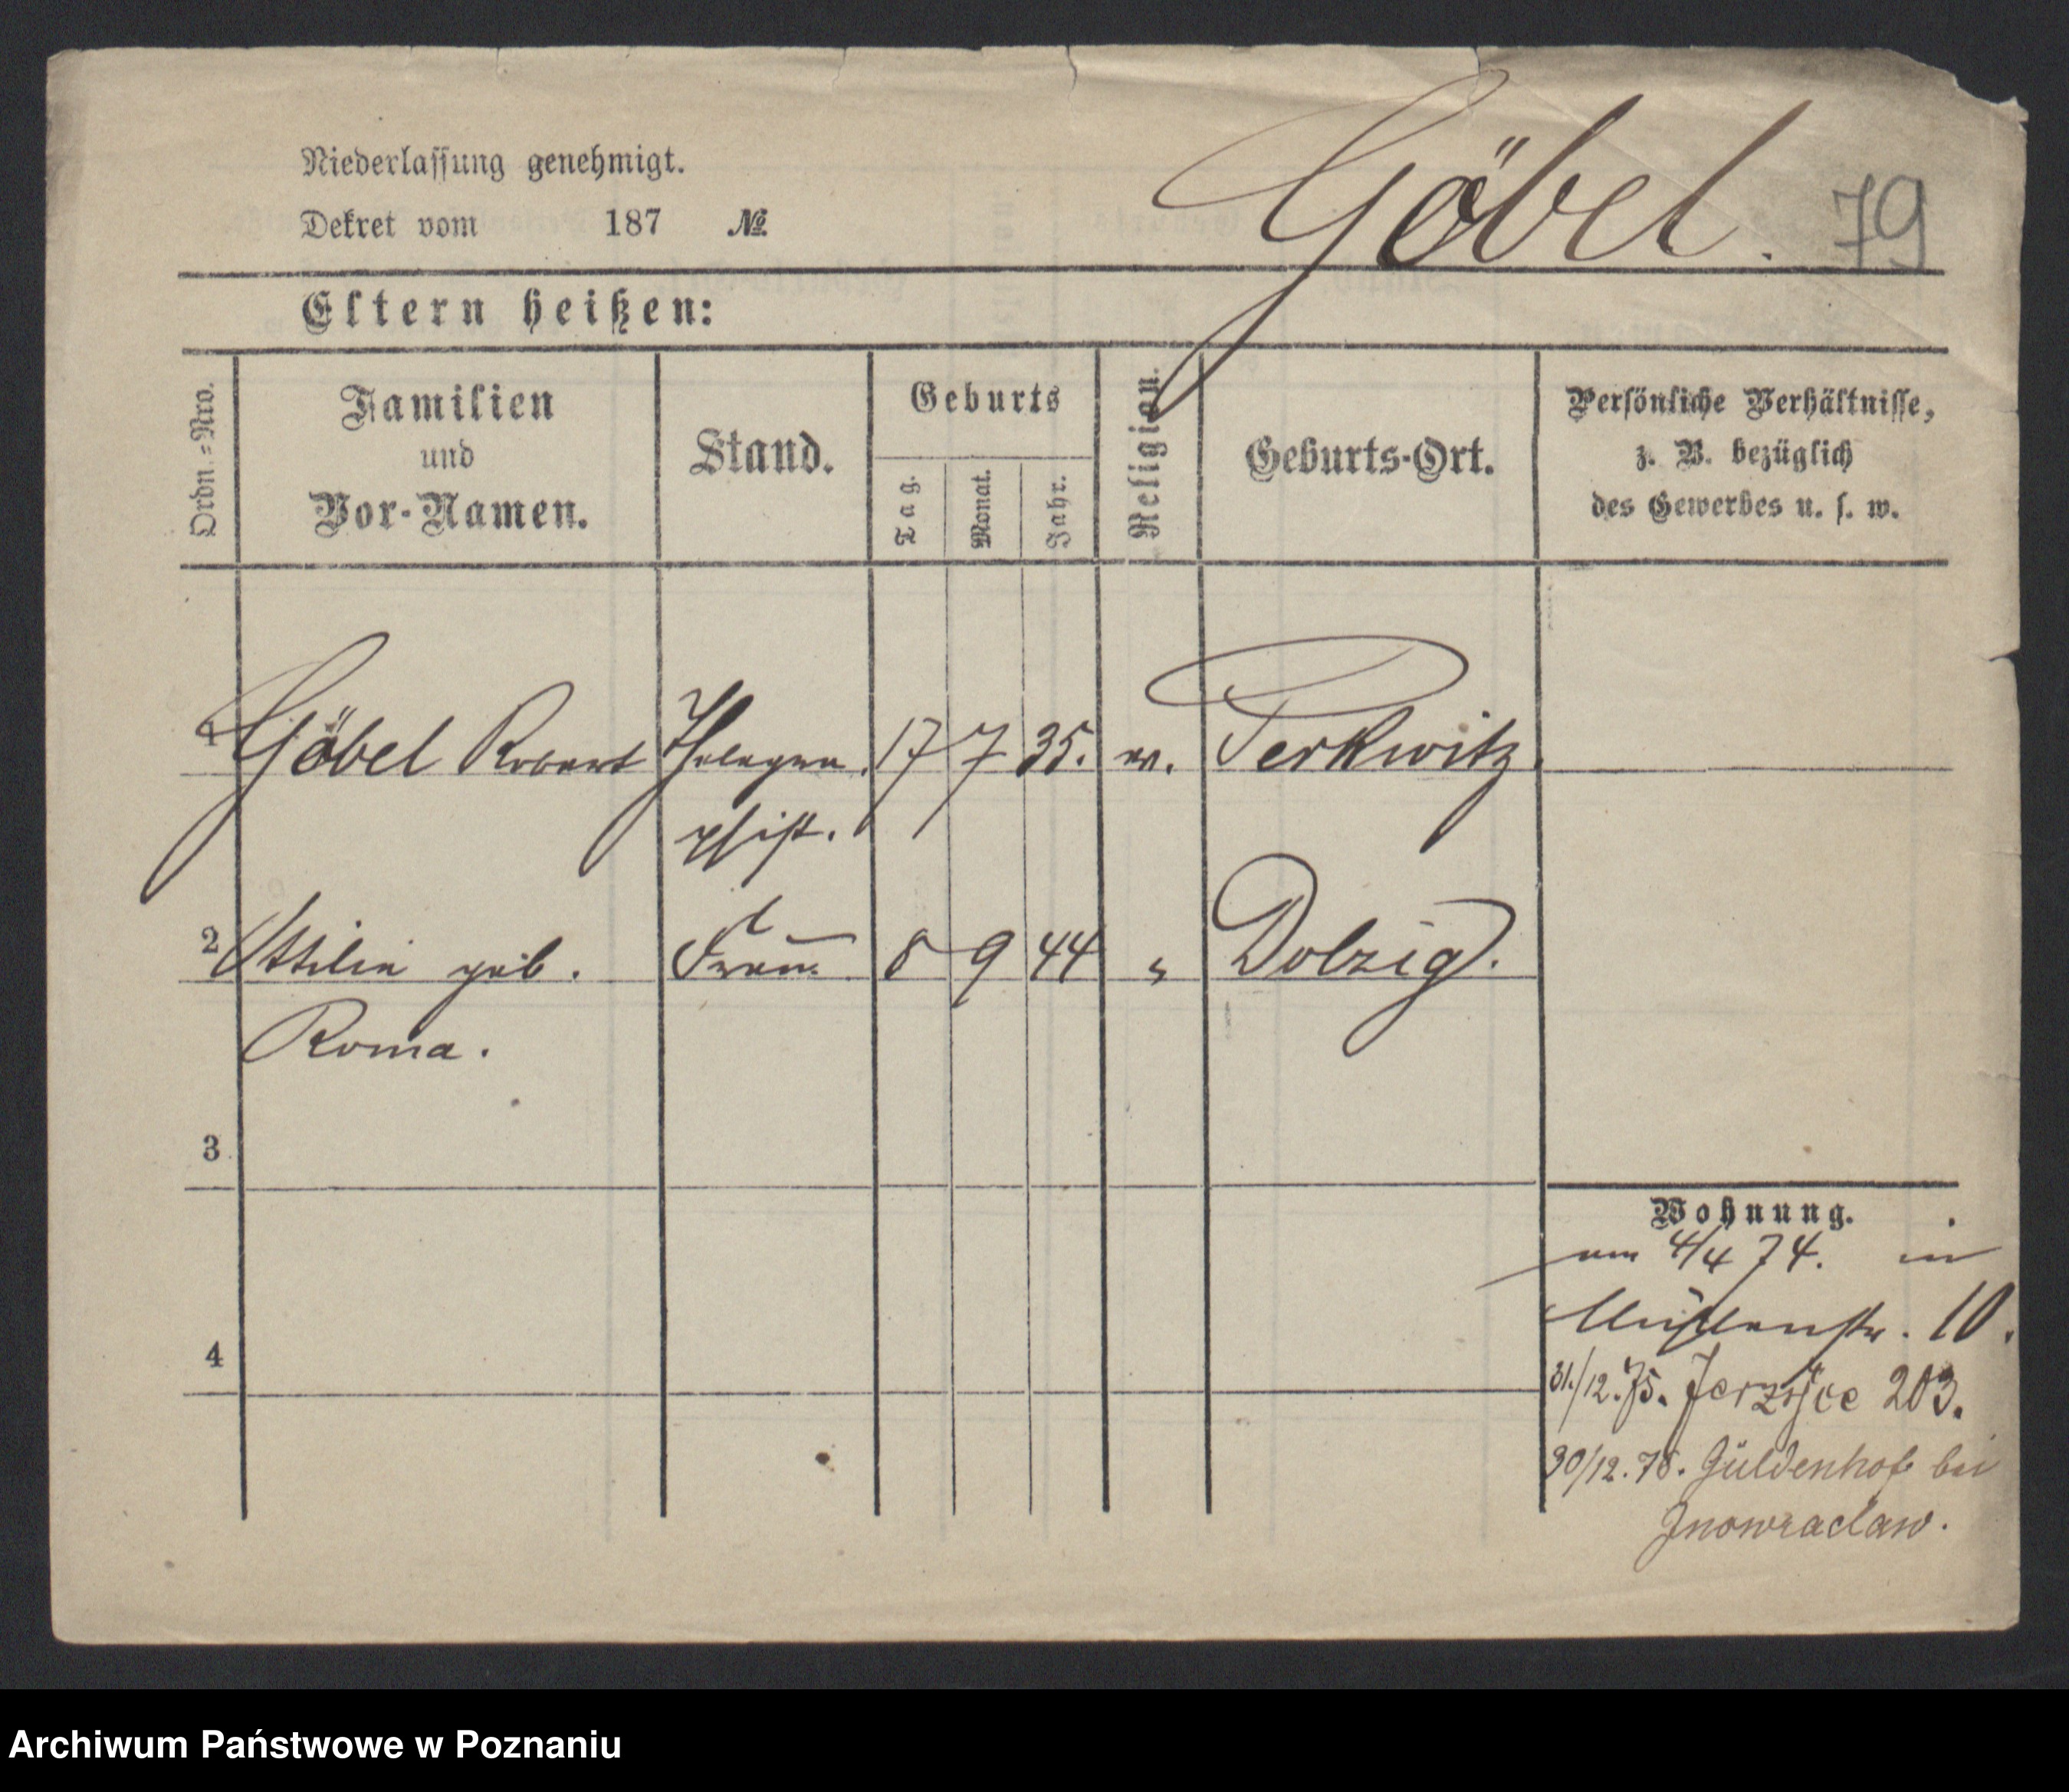 Niederlassung genehmigt.
Dekret vom 187 №
Göbel. 79
Eltern heißen:
Ordn.-Nro.
Familien
und
Vor-Namen.
Stand.
Geburts
Tag.
Monat.
Jahr.
Religion.
Geburts-Ort.
Persönliche Verhältnisse,
z. B. bezüglich
des Gewerbes u. s. w.
1 Göbel Robert Telegra 17 7 35. ev. Terkwitz.
phist.
2 Ottilie geb. Frau 8 9 44 " Dolzig.
Roma.
3
4
Wohnung.
am 4/4 74. in
Mühlenstr. 10.
31/12.75. Jerzyce 203.
30/12.76. Güldenhof bei
Inowraclaw.
Archiwum Państwowe w Poznaniu